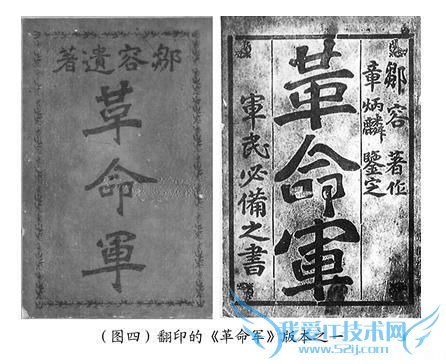 鄒容遺著
革命軍
鄒容 著作
章炳麟 鑒定
革命軍
軍民必備之書
（图四）翻印的《革命军》版本之一
我爱IT技术网
www.52ij.com